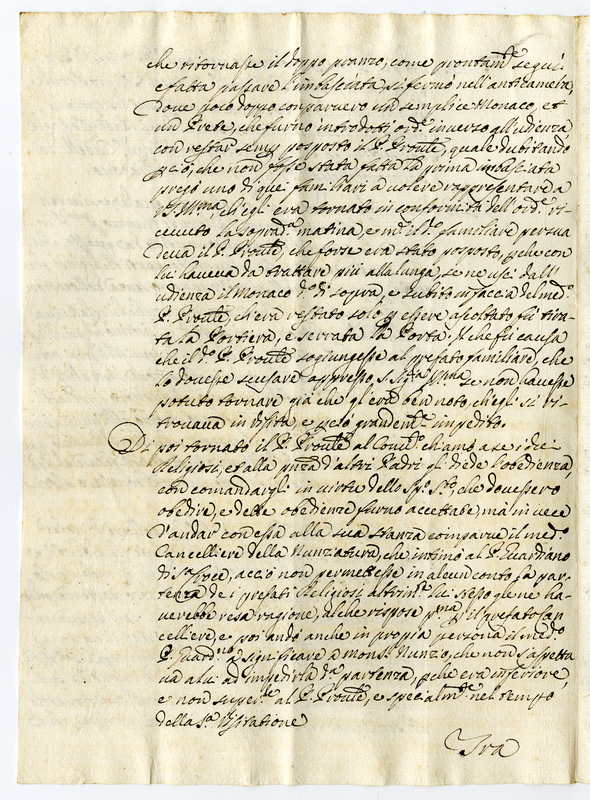 che ritornasse il doppo pranzo, come prontam.te seguì
e fatta passare l'imbasciata, si fermò nell'anticamera,
dove poco doppo comparvero un semplice Monaco, et
un Prete, che furno introdotti ord.e inverso all'udienza
con restar semp.e posposto il P. Prou.le, quale dubitando
che non fosse stata fatta la prima imbasciata
pregò uno di quei familiari a volere rappresentare a
ch'egli era tornato in conformità dell'ord.e ri-
cevuto la soprad.a matina, e il d.o familiare persua
deva il P. Prou.le, che forse era stato posposto, che con
lui haveva da trattare più alla lunga, se ne uscì dall'u
dienza il Monaco d.o di sopra, e subito in faccia del med.o
P. Prou.le, ch'era restato solo essere ascoltato fu tira-
ta la Portiera, e serrata la Porta; Il che fu causa
che il d.o P. Prou.le sogiungesse al prefato familiare, che
lo dovesse scusare appresso S. Sig.ria Ill.ma se non havesse
potuto tornare già che gl'era ben noto, ch'egli si ri-
trovava in Visita, e perciò grandem.te impedito.
Di poi tornato il P. Prou.le al Conv.to chiamò a se i due
Religiosi, et alla prza d'altri Padri gli diede l'obedienza,
con comandargli in virtù dello Sp.o S.to, che dovessero
obedire, e dette obedienze furno accettate, mà in vece
d'andar con essa alla sua stanza comparve il med.o
Cancelliere della Nunziatura, che intimò al P. Guardiano
di S.ta Croce, acciò non permettesse in alcun conto la par-
tenza de i prefati Religiosi altrim.ti lui stesso gle ne ha-
verebbe resa ragione, al che rispose p.ma il prefato Can
celliere, e poi andò anche in propria persona il med.o
P. Guard.no a significare a Mons.r Nunzio, che non s'aspetta
va a lui ad impedirli d.a partenza, che era inferiore,
e non super.re al P. Prou.le, e specialm.te nel tempo
della S.a Visitatione
Tra